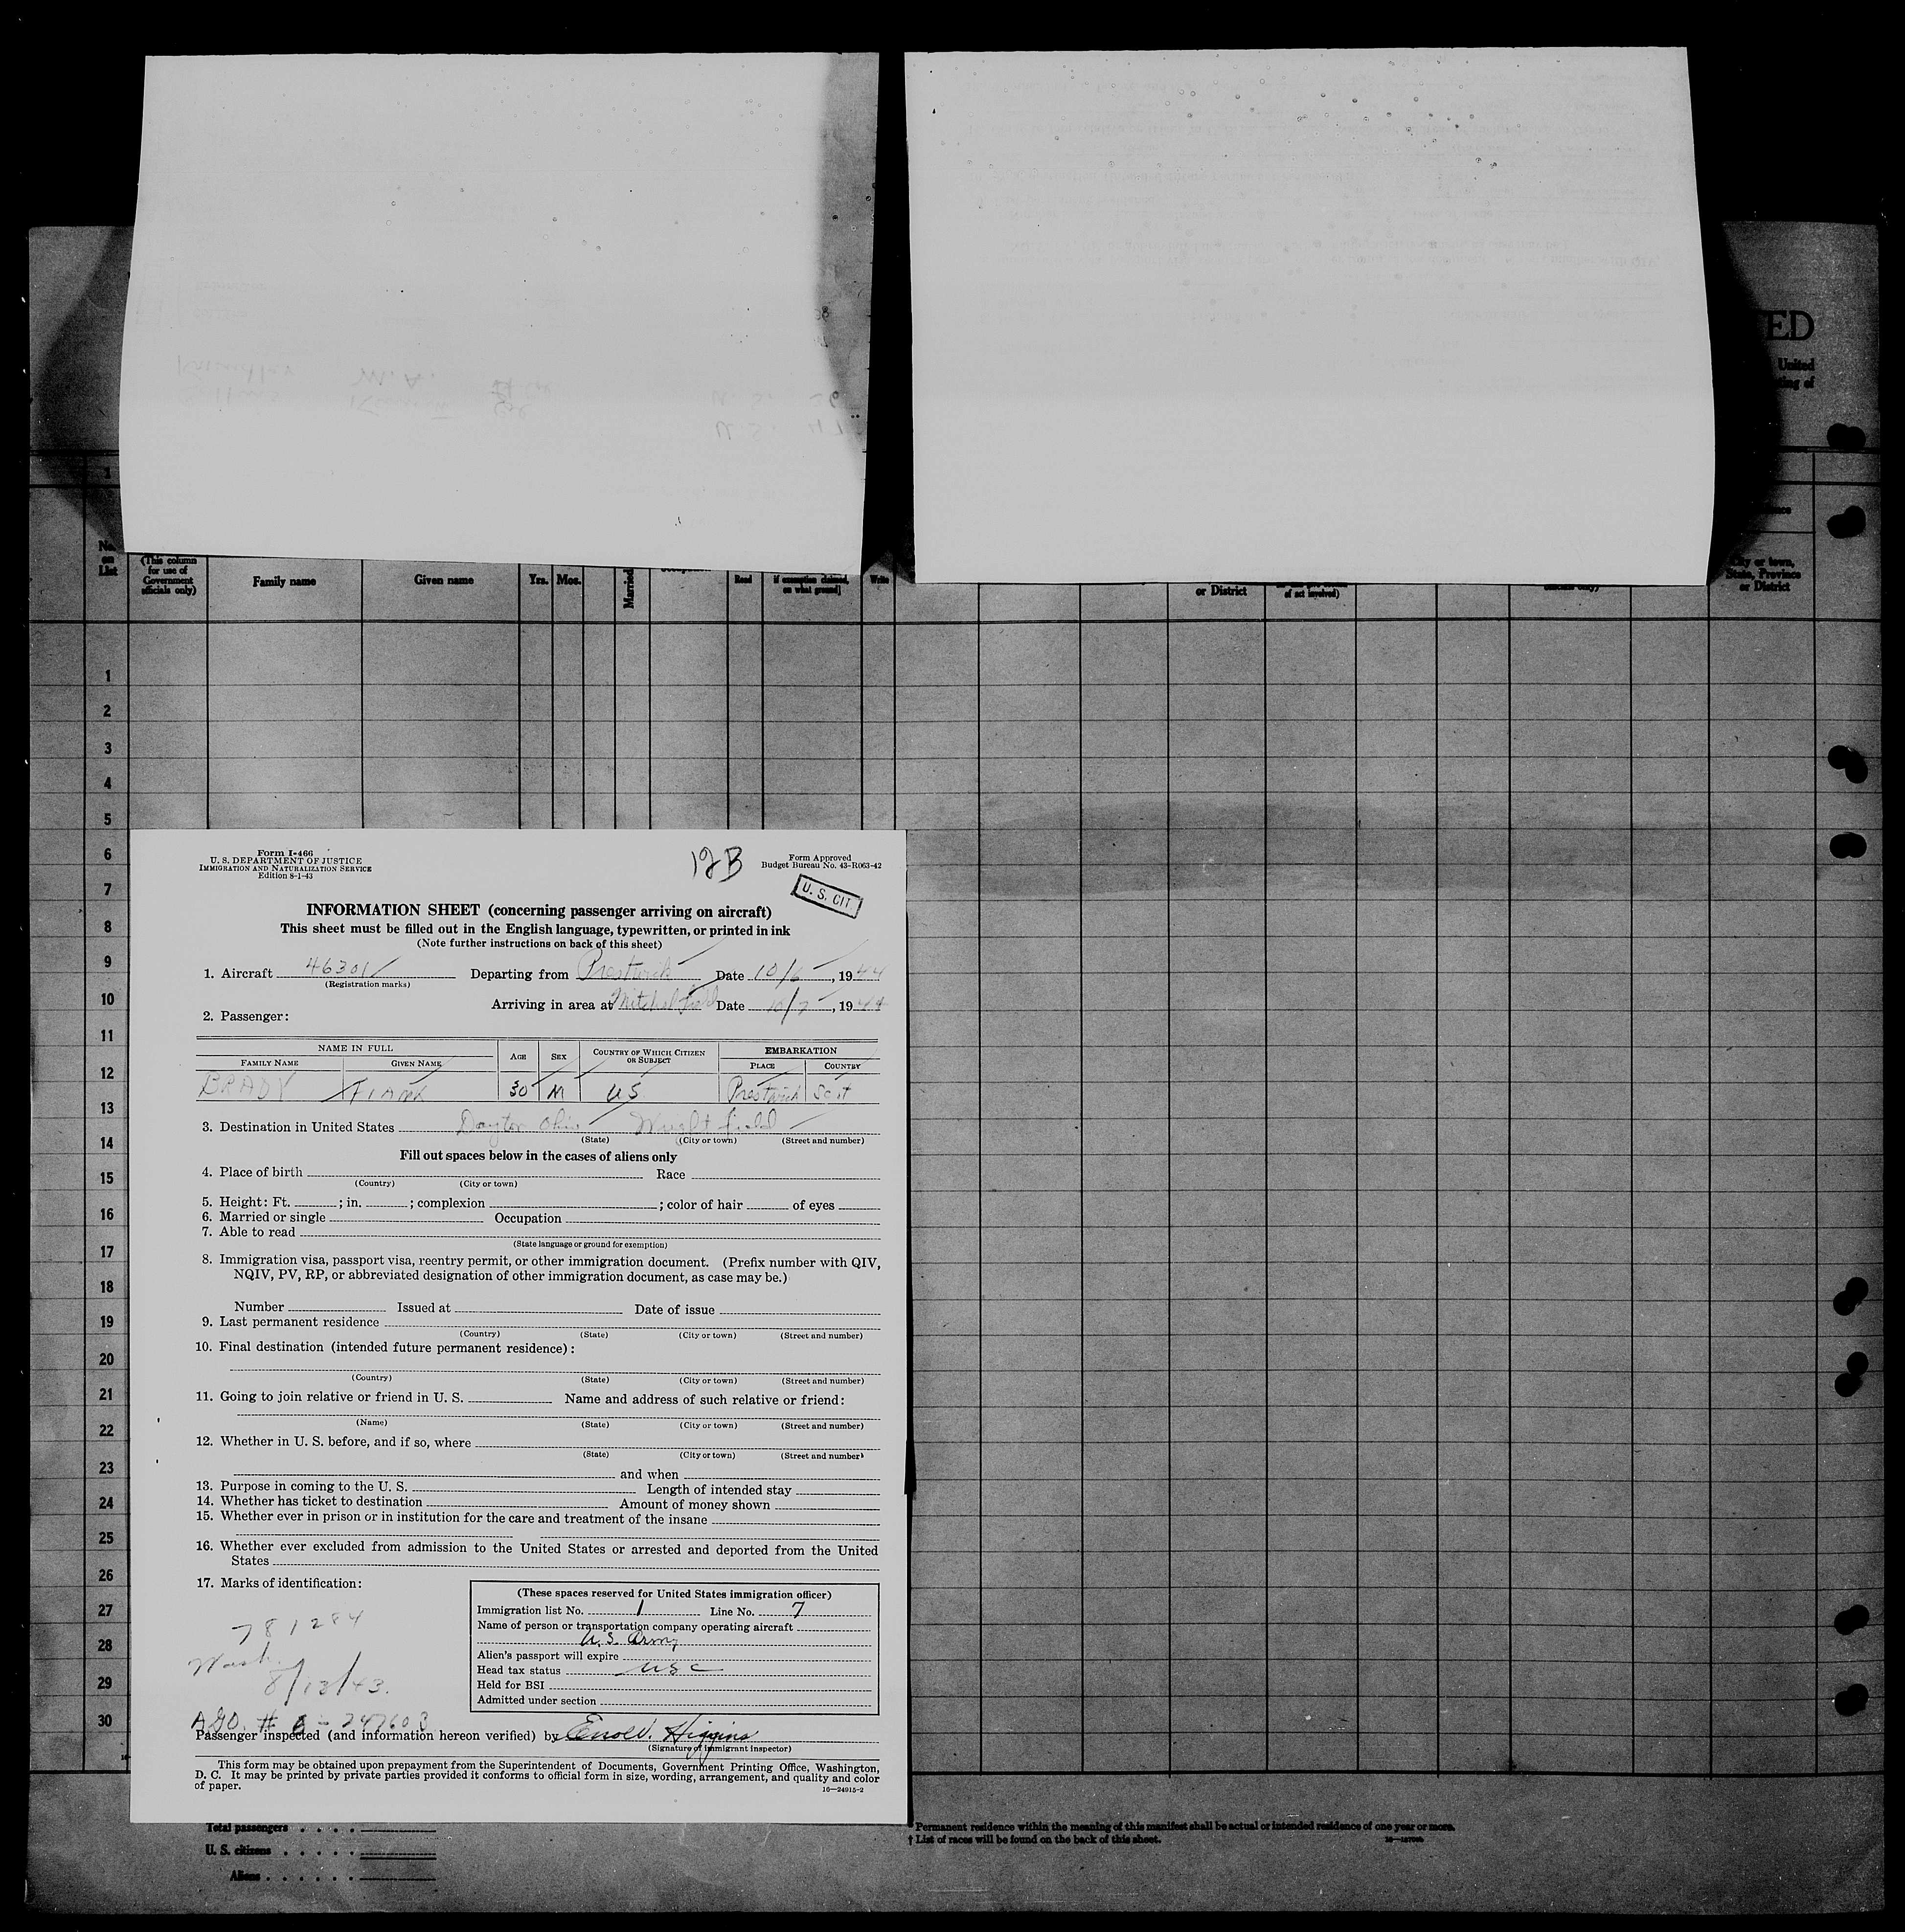 ED
United
ting of
1
No. on List
(This column for use of Government officials only)
Family name
Given name
Yrs.
Mos.
Married
Read
[if exemption claimed, on what ground]
Write
or District
of act involved)
City or town, State, Province or District
1
2
3
4
5
6
7
8
9
10
11
12
13
14
15
16
17
18
19
20
21
22
23
24
25
26
27
28
29
30
Form I-466
U. S. DEPARTMENT OF JUSTICE
IMMIGRATION AND NATURALIZATION SERVICE
Edition 8-1-43
12B
Form Approved
Budget Bureau No. 43-R063-42
U. S. CIT
INFORMATION SHEET (concerning passenger arriving on aircraft)
This sheet must be filled out in the English language, typewritten, or printed in ink
(Note further instructions on back of this sheet)
1. Aircraft 46301 Departing from Prestwick Date 10/6, 1944
(Registration marks)
Arriving in area at Mitchel field Date 10/7, 1944
2. Passenger:
NAME IN FULL
AGE
SEX
COUNTRY OF WHICH CITIZEN OR SUBJECT
EMBARKATION
FAMILY NAME
GIVEN NAME
PLACE
COUNTRY
BRADY Frank 30 M US Prestwick Scot
3. Destination in United States Dayton Ohio Wright field
(State) (City or town) (Street and number)
Fill out spaces below in the cases of aliens only
4. Place of birth Race
(Country) (City or town)
5. Height: Ft. ; in. ; complexion ; color of hair of eyes
6. Married or single Occupation
7. Able to read
(State language or ground for exemption)
8. Immigration visa, passport visa, reentry permit, or other immigration document. (Prefix number with QIV,
NQIV, PV, RP, or abbreviated designation of other immigration document, as case may be.)
Number Issued at Date of issue
9. Last permanent residence
(Country) (State) (City or town) (Street and number)
10. Final destination (intended future permanent residence):
(Country) (State) (City or town) (Street and number)
11. Going to join relative or friend in U. S. Name and address of such relative or friend:
(Name) (State) (City or town) (Street and number)
12. Whether in U. S. before, and if so, where
(State) (City or town) (Street and number)
and when
13. Purpose in coming to the U. S. Length of intended stay
14. Whether has ticket to destination Amount of money shown
15. Whether ever in prison or in institution for the care and treatment of the insane
16. Whether ever excluded from admission to the United States or arrested and deported from the United
States
17. Marks of identification:
781284
Wash.
8/13/43.
AGO. # 247603
(These spaces reserved for United States immigration officer)
Immigration list No. 1 Line No. 7
Name of person or transportation company operating aircraft
U.S. Army
Alien's passport will expire
Head tax status USC
Held for BSI
Admitted under section
Passenger inspected (and information hereon verified) by Higgins
(Signature of immigrant inspector)
This form may be obtained upon prepayment from the Superintendent of Documents, Government Printing Office, Washington,
D. C. It may be printed by private parties provided it conforms to official form in size, wording, arrangement, and quality and color
of paper.
16—24915-2
Total passengers . . . .
U. S. citizens . . . . .
Aliens . . . . . .
* Permanent residence within the meaning of this manifest shall be actual or intended residence of one year or more.
† List of races will be found on the back of this sheet.